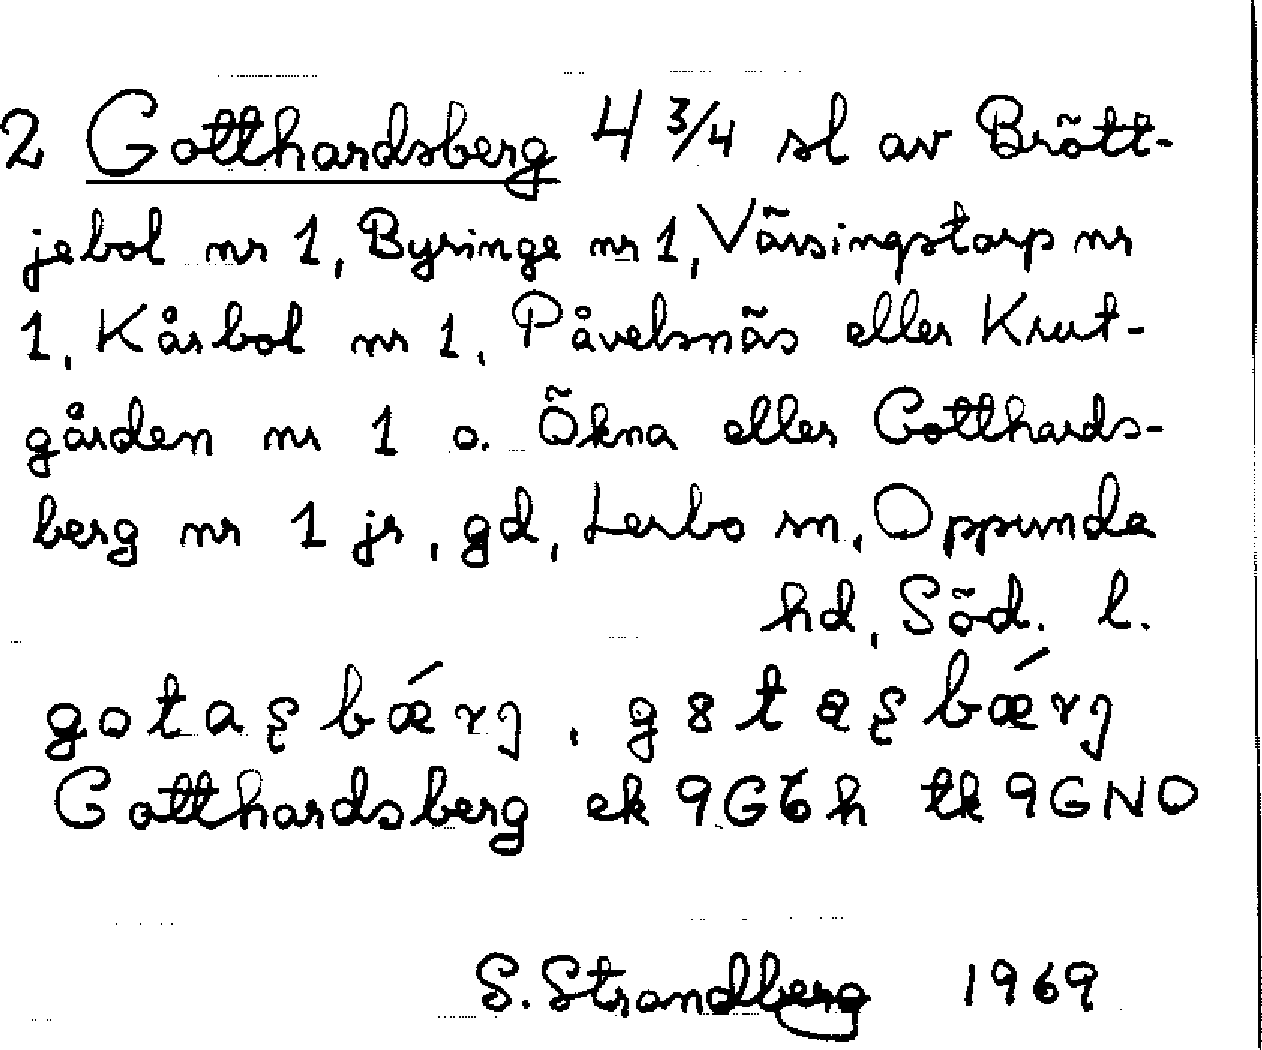 2 Gotthardsberg 4 3/4 sl av Brött-
jebol nr 1, Byringe nr 1, Värsingstorp nr
1, Kårbol nr 1, Påvelsnäs eller Krut-
gården nr 1 o. Ökna eller Gotthards-
berg nr 1 js, gd, Lerbo sn, Oppunda
hd, Söd. l.
gotaʂbǽrj, g8taʂbǽrj
Gotthardsberg ek 9G6h tk 9GNO
S. Strandberg 1969